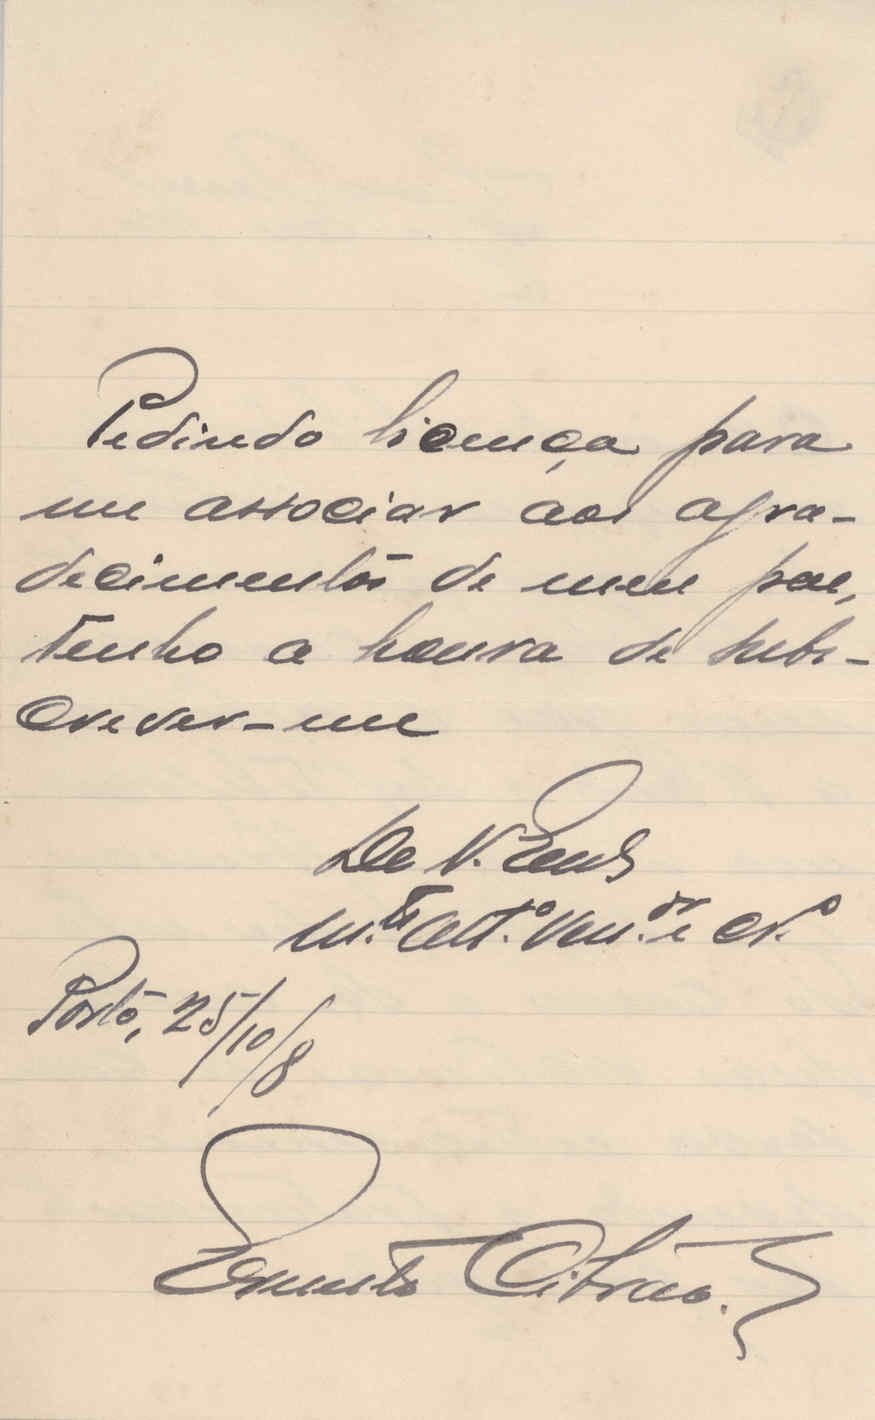 Pedindo licença para
me associar aos agra-
decimentos de meu pae,
tenho a honra de subs-
crever-me
De V. Excª
m.to att.o ven.or e cr.o
Porto, 25/10/8
Ernesto Cibrão.